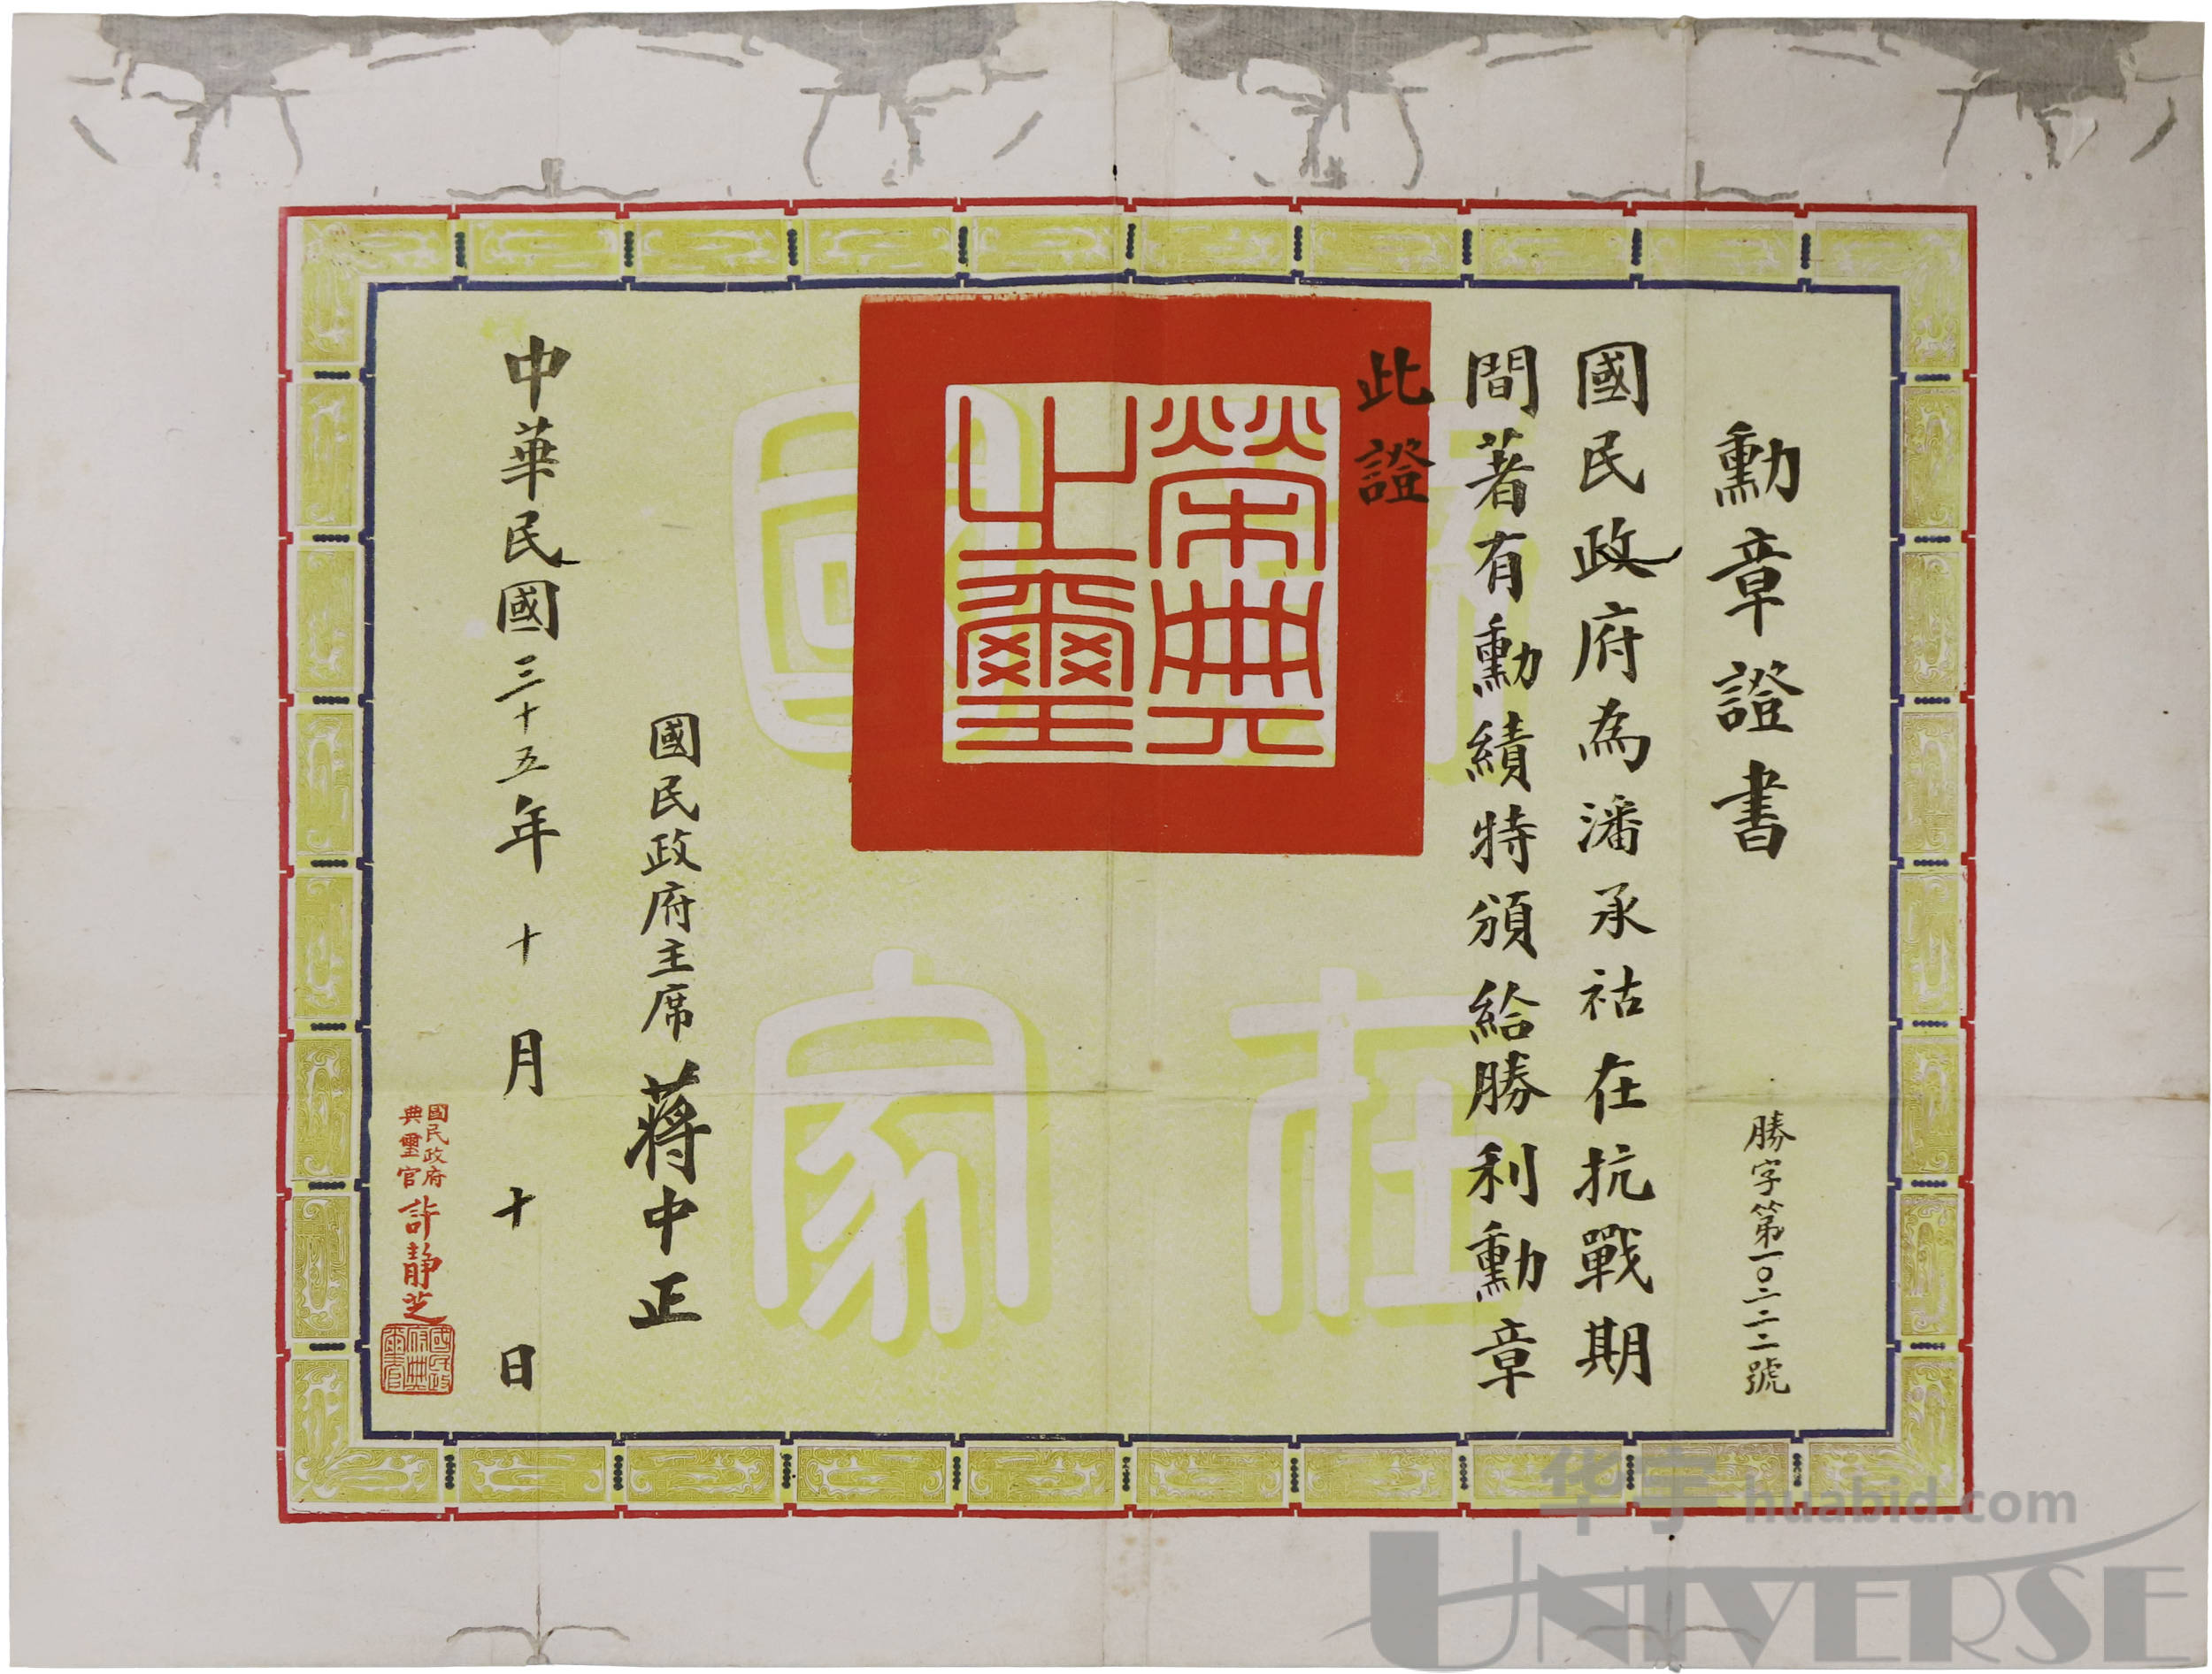 勳章證書
勝字第一〇三二二號
國民政府為潘承祜在抗戰期
間著有勳績特頒給勝利勳章
此證
榮典
之璽
國民政府主席 蔣中正
中華民國三十五年十月十日
國民政府
典璽官 許靜芝
國民政
府典
璽官
國
在
家
华宇 huabid.com
UNIVERSE